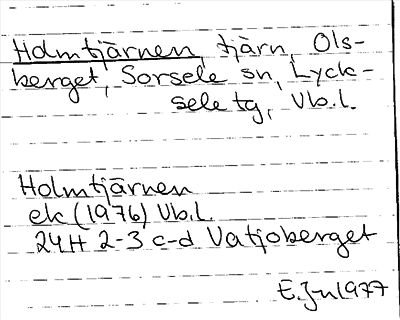 Holmtjärnen, tjärn, Ols-
berget, Sorsele sn, Lyck-
sele tg, Vb.l.
Holmtjärnen
ek (1976) Vb.l.
24H 2-3 c-d Vatjoberget
E. Jn 1977